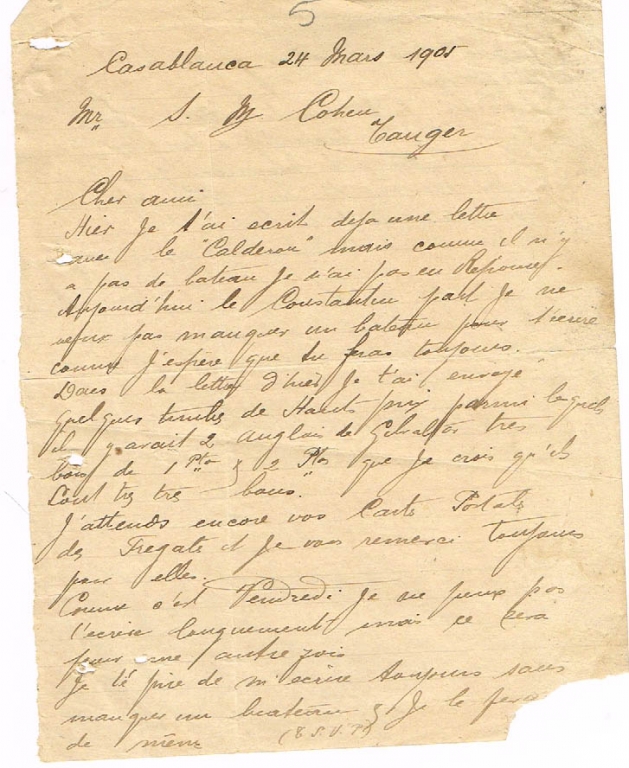 5
Casablanca 24 Mars 1905
Mr S. M Cohen
Tanger
Cher ami
Hier Je t'ai ecrit deja une lettre
avec le "Calderon" mais comme il n'y
a pas de bateau Je n'ai pas eu Reponse.
Aujourd'hui le Constantin part Je ne
veux pas manquer un bateau pour t'ecrire
comme J'espère que tu feras toujours.
Dans la lettre d'hier Je t'ai envoyé
quelques timbres de Hauts prix parmi lequels
il y avait 2 anglais de Gibraltar très
bons de 1 Pta & 2 Ptas que Je crois qu'ils
sont tres tres bons."
J'attends encore vos Carte Postale
des Fregate et Je vous remerci toujours
pour elles.
Comme c'est Vendredi Je ne peux pas
t'ecrire longuement mais ce sera
pour une autre fois
Je te prie de m'ecrire toujours sans
manquer un bateau & Je le ferai
de même (T.S.V.P)